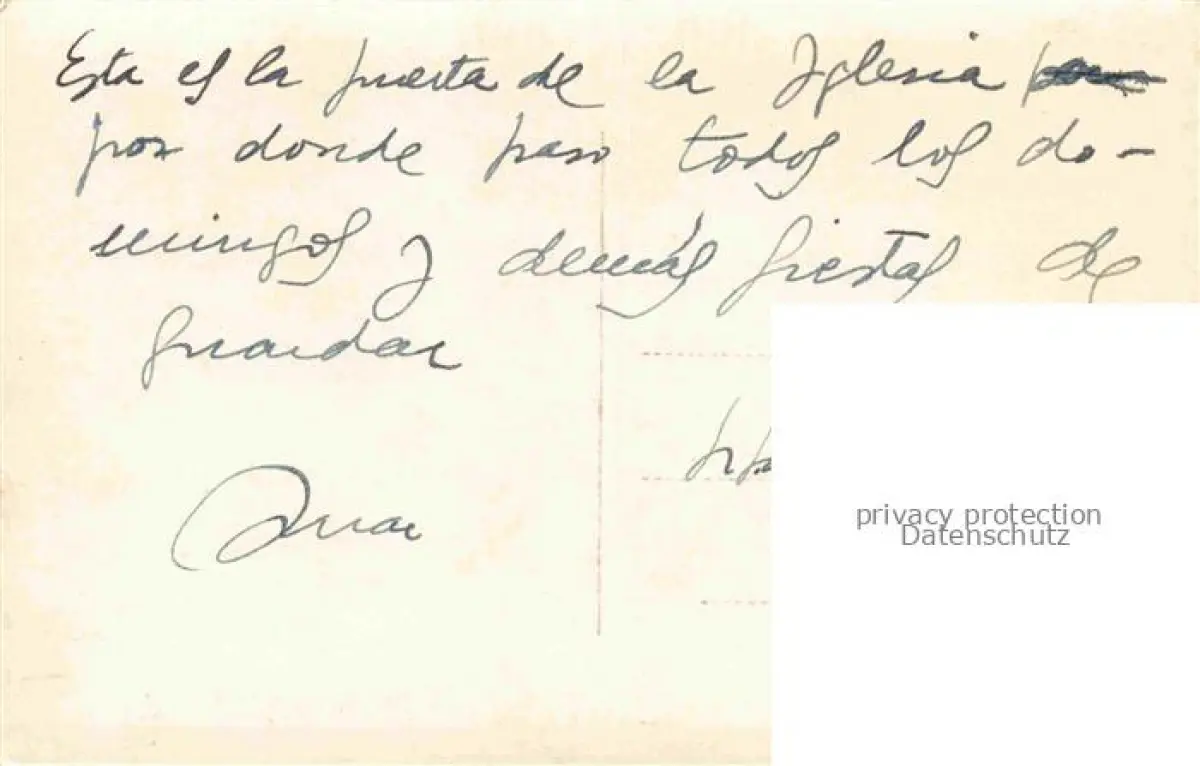 Esta es la puerta de la Iglesia
por donde paso todos los do-
mingos y demás fiestas de
guardar
privacy protection
Datenschutz